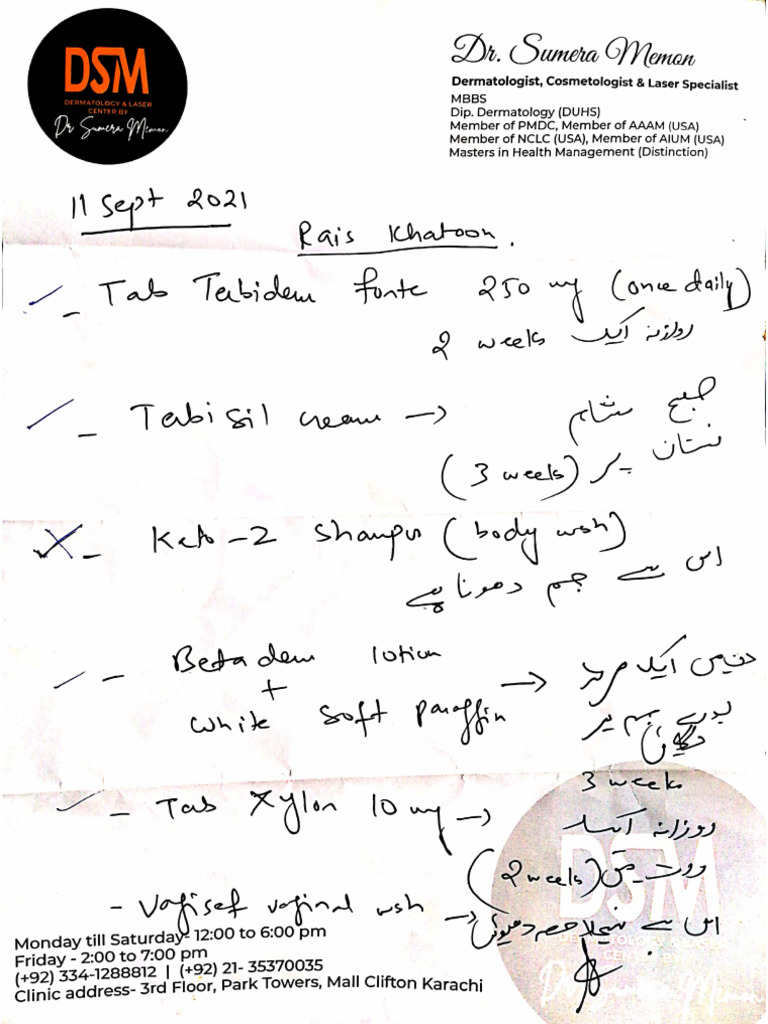 DSM
DERMATOLOGY & LASER
CENTER BY
Dr Sumera Memon
Dr. Sumera Memon
Dermatologist, Cosmetologist & Laser Specialist
MBBS
Dip. Dermatology (DUHS)
Member of PMDC, Member of AAAM (USA)
Member of NCLC (USA), Member of AIUM (USA)
Masters in Health Management (Distinction)
11 Sept 2021
Rais Khatoon.
- Tab Terbiderm forte 250 mg (once daily)
2 weeks روزانہ ایک
- Terbisil cream → صبح شام
(3 weeks) نشان پر
- Keto-2 Shampu (body wsh)
اس سے جسم دھونا ہے
- Betaderm lotion
+
White soft paraffin → دن میں ایک مرتبہ
پورے جسم پر
لگائیں
3 weeks
- Tab Xylon 10 mg → روزانہ ایک
(2 weeks)
- Vagisef vaginal wsh → اس سے نچلا حصہ دھوئیں
Monday till Saturday- 12:00 to 6:00 pm
Friday - 2:00 to 7:00 pm
(+92) 334-1288812 | (+92) 21- 35370035
Clinic address- 3rd Floor, Park Towers, Mall Clifton Karachi
DSM
DERMATOLOGY & LASER
CENTER BY
Dr Sumera Memon